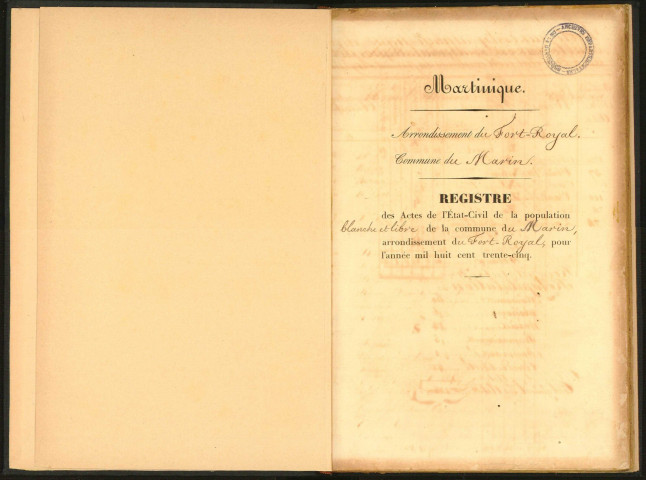 Martinique.
Arrondissement du Fort-Royal.
Commune du Marin.
REGISTRE
des Actes de l'État-Civil de la population
blanche et libre de la commune du Marin,
arrondissement du Fort-Royal, pour
l'année mil huit cent trente-cinq.